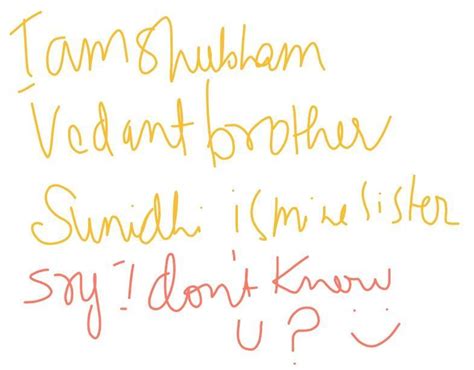 I am Shubham
Vedant brother
Sunidhi is mine sister
sry I don't know
u?